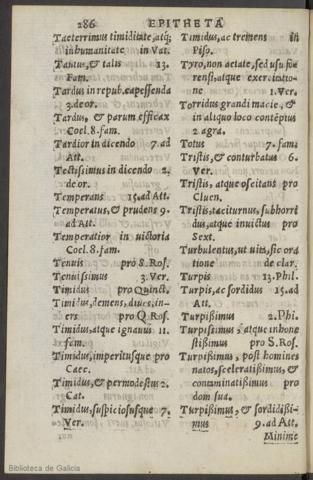 286 EPITHETA
Taeterrimus timiditate, atq;
inhumanitate in Vat.
Tantus, & talis 13.
Fam.
Tardus in repub. capessenda
3. de or.
Tardus, & parum efficax
Coel. 8. fam.
Tardior in dicendo 7. ad
Att.
Tectissimus in dicendo 2.
de or.
Temperans 15. ad Att.
Temperatus, & prudens 9.
ad Att.
Temperatior in victoria
Coel. 8. fam.
Tenuis pro S. Ros.
Tenuissimus 3. Ver.
Timidus pro Quinct.
Timidus, demens, diues, in-
ers pro Q. Ros.
Timidus, atque ignauus 11.
fam.
Timidus, imperitusque pro
Caec.
Timidus, & permodestus 2.
Cat.
Timidus, suspiciosusque 7.
Ver.
Timidus, ac tremens in
Piso.
Tyro, non aetate, sed usu fo-
rensi, atque exercitatio-
ne 1. Ver.
Torridus grandi macie, &
in aliquo loco contẽptus
2. agra.
Totus 7. fam.
Tristis, & conturbatus 6.
Ver.
Tristis, atque oscitans pro
Cluen.
Tristis, taciturnus, subhorri
dus, atque inuictus pro
Sext.
Turbulentus, ut uita, sic ora
tione de clar.
Turpis 13. Phil.
Turpis, ac sordidus 15. ad
Att.
Turpissimus 2. Phi.
Turpissimus, atque inhone
stissimus pro S. Ros.
Turpissimus, post homines
natos, sceleratissimus, &
contaminatissimus pro
dom sua.
Turpissimus, & sordidissi-
mus 9. ad Att.
Minime
Biblioteca de Galicia